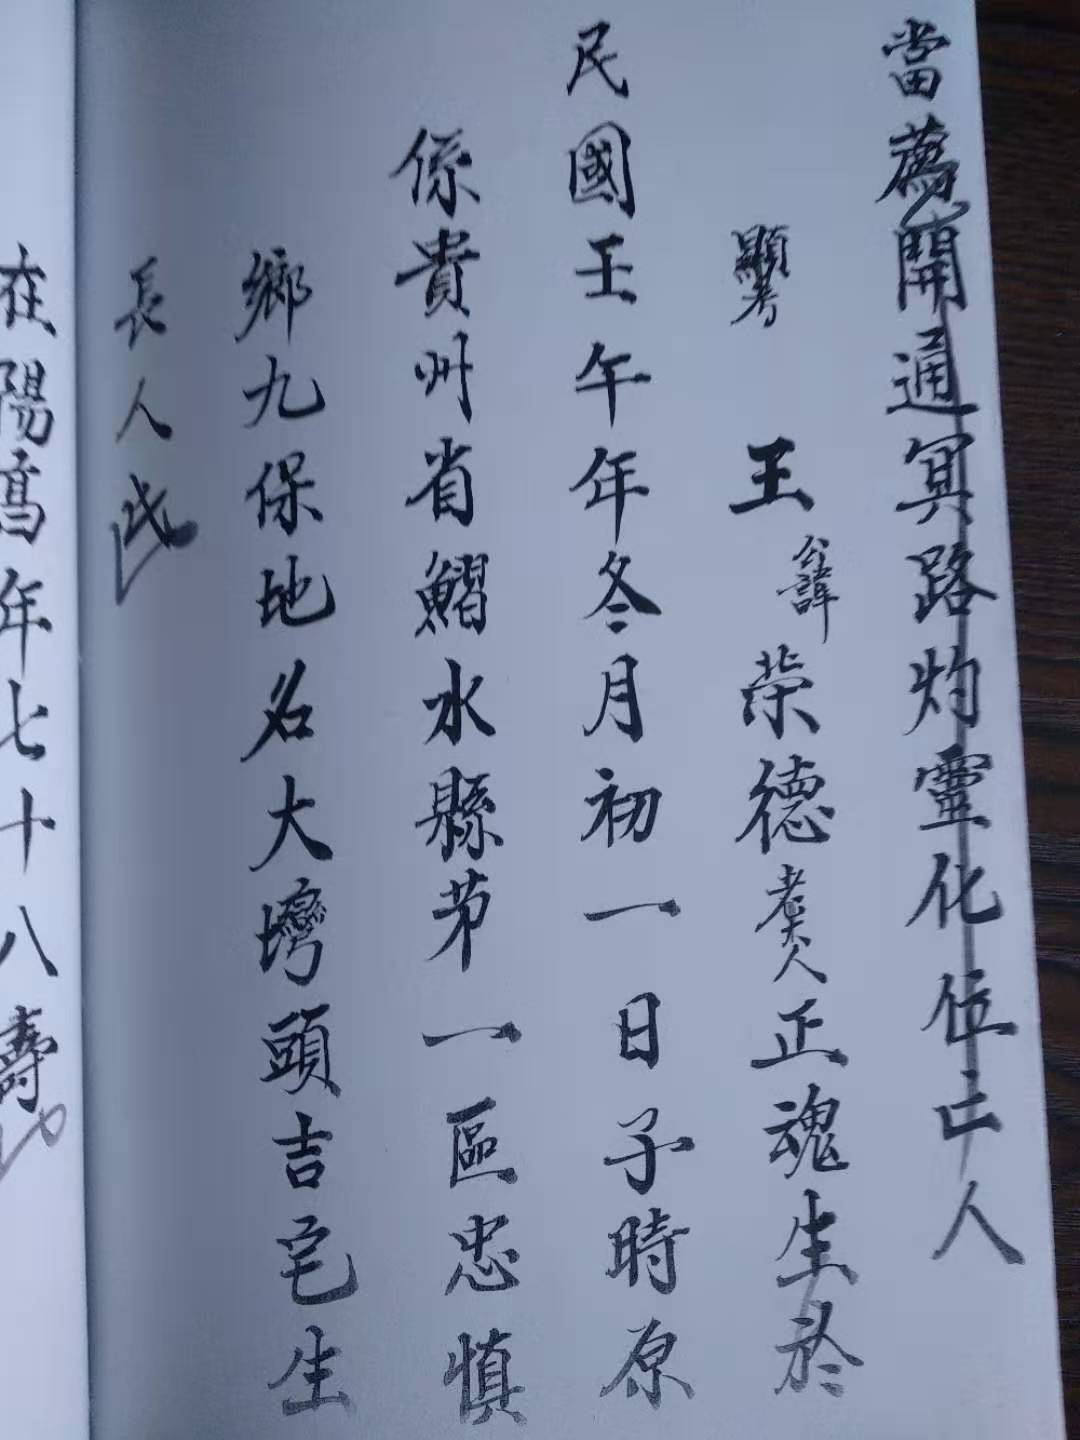 當薦開通冥路灼靈化位亡人
顯考 王公諱荣德老大人正魂生於
民國壬午年冬月初一日子時原
係貴州省鰼水縣苐一區忠慎
鄉九保地名大塆頭吉宅生
長人氏
在陽高年七十八壽